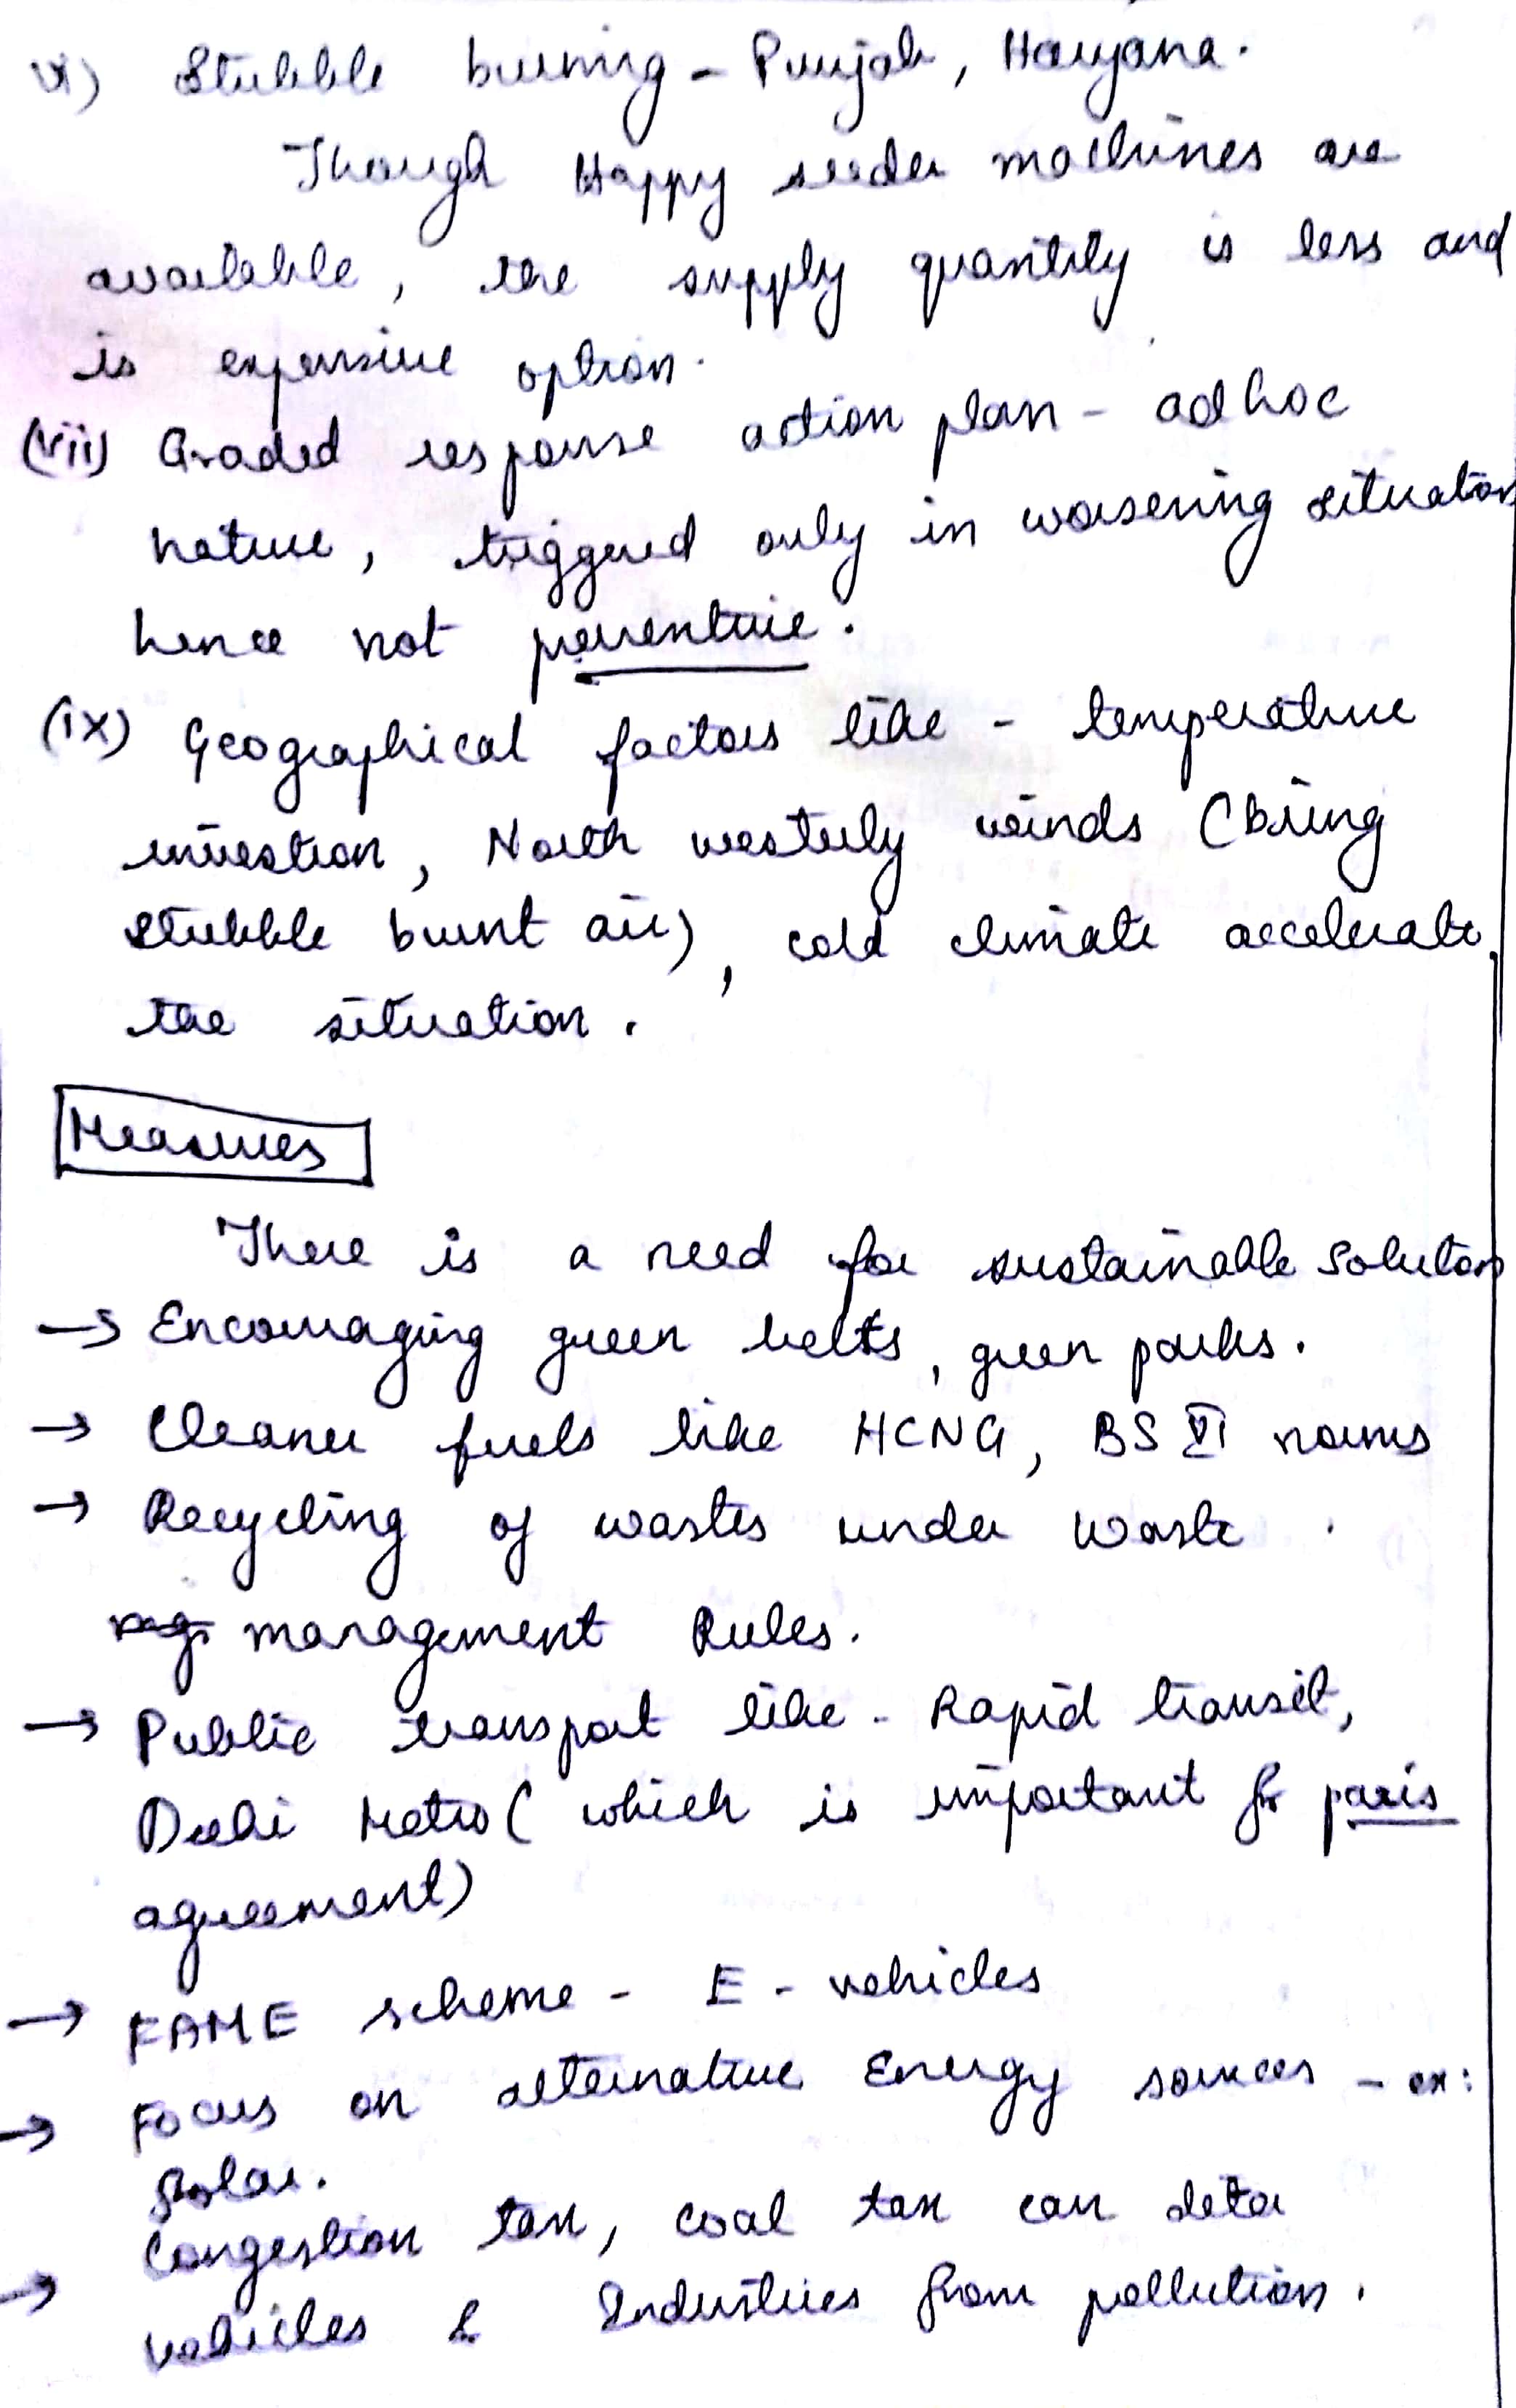 vi) Stubble burning - Punjab, Haryana.
Though Happy seeder machines are
available, the supply quantity is less and
is expensive option.
(vii) Graded response action plan - adhoc
nature, triggered only in worsening situation
hence not preventive.
(ix) Geographical factors like - temperature
inversion, North westerly winds (bring
stubble burnt air), cold climate accelerate
the situation.
Measures
There is a need for sustainable solution
→ Encouraging green belts, green parks.
→ Cleaner fuels like HCNG, BS VI norms
→ Recycling of wastes under waste
management Rules.
→ Public transport like - Rapid transit,
Delhi Metro (which is important for paris
agreement)
→ FAME scheme - E - vehicles
→ Focus on alternative Energy sources - ex:
Solar.
→ Congestion tax, coal tax can deter
vehicles & Industries from pollution.